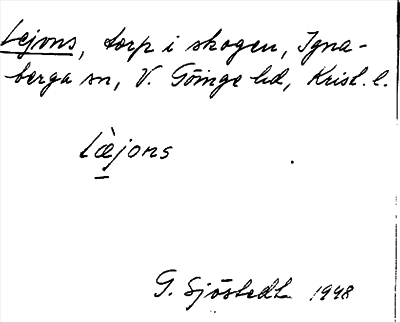 Lejons, torp i skogen, Igna-
berga sn, V. Göinge hd, Krist. l.
Læ̀jons
G. Sjöstedt 1948